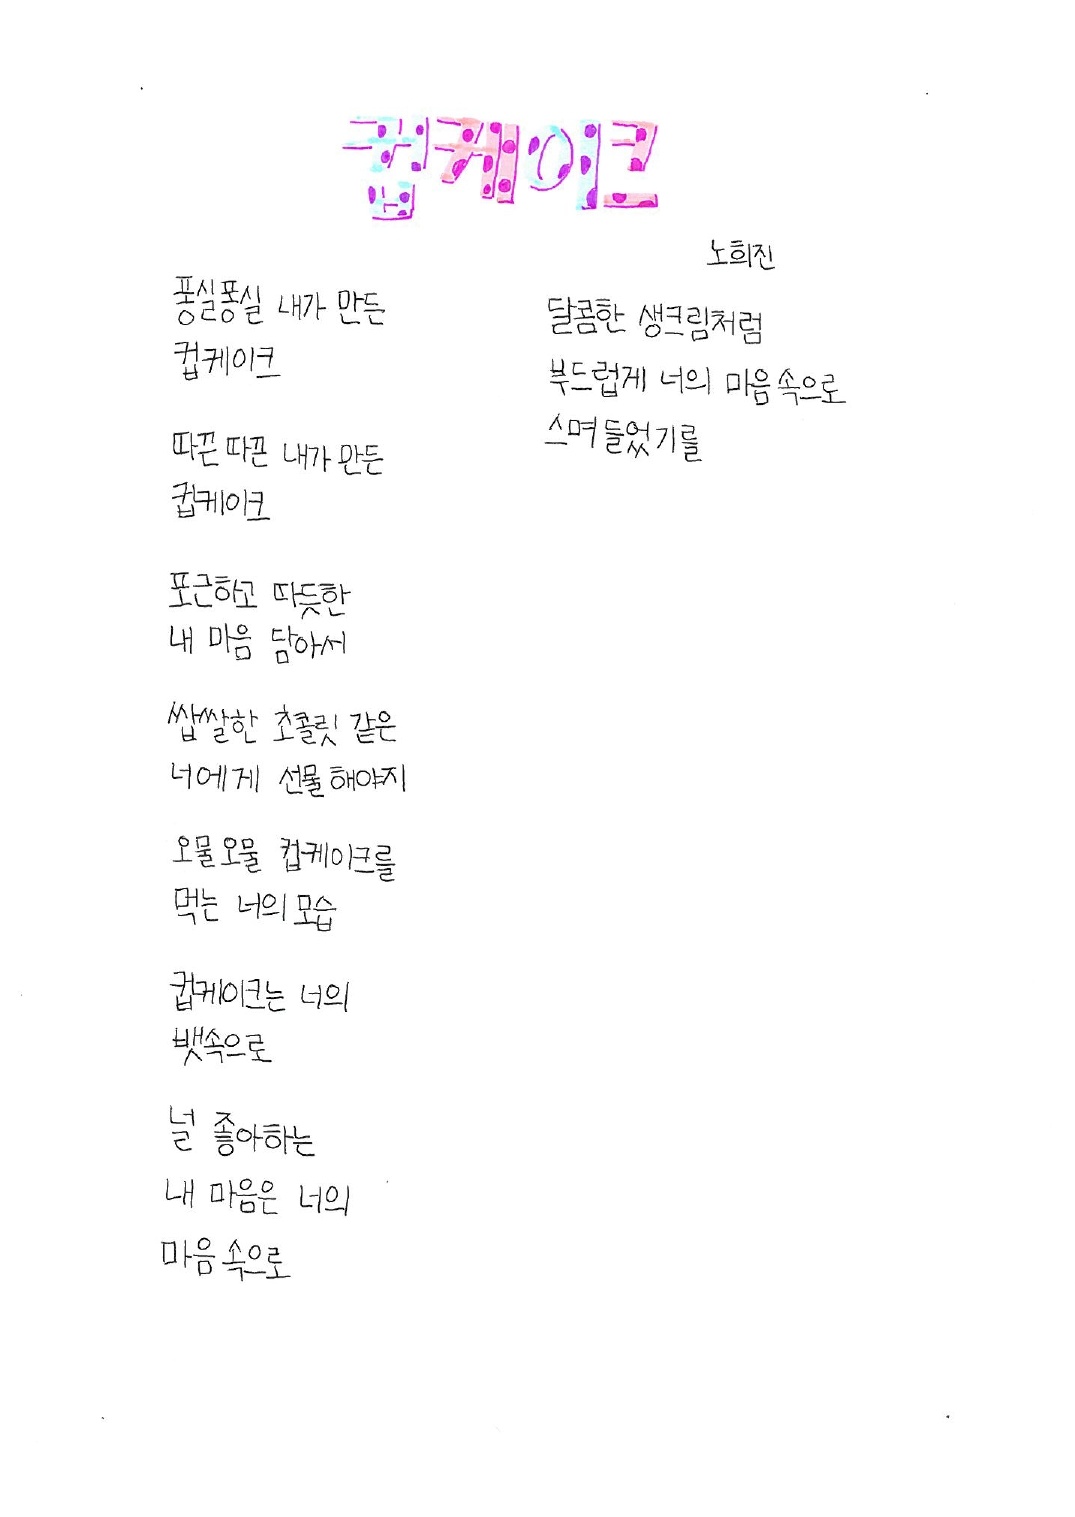 컵케이크
노희진
퐁실퐁실 내가 만든
컵케이크
따끈따끈 내가 만든
컵케이크
포근하고 따듯한
내 마음 담아서
쌉쌀한 초콜릿 같은
너에게 선물해야지
오물오물 컵케이크를
먹는 너의 모습
컵케이크는 너의
뱃속으로
널 좋아하는
내 마음은 너의
마음 속으로
달콤한 생크림처럼
부드럽게 너의 마음 속으로
스며들었기를